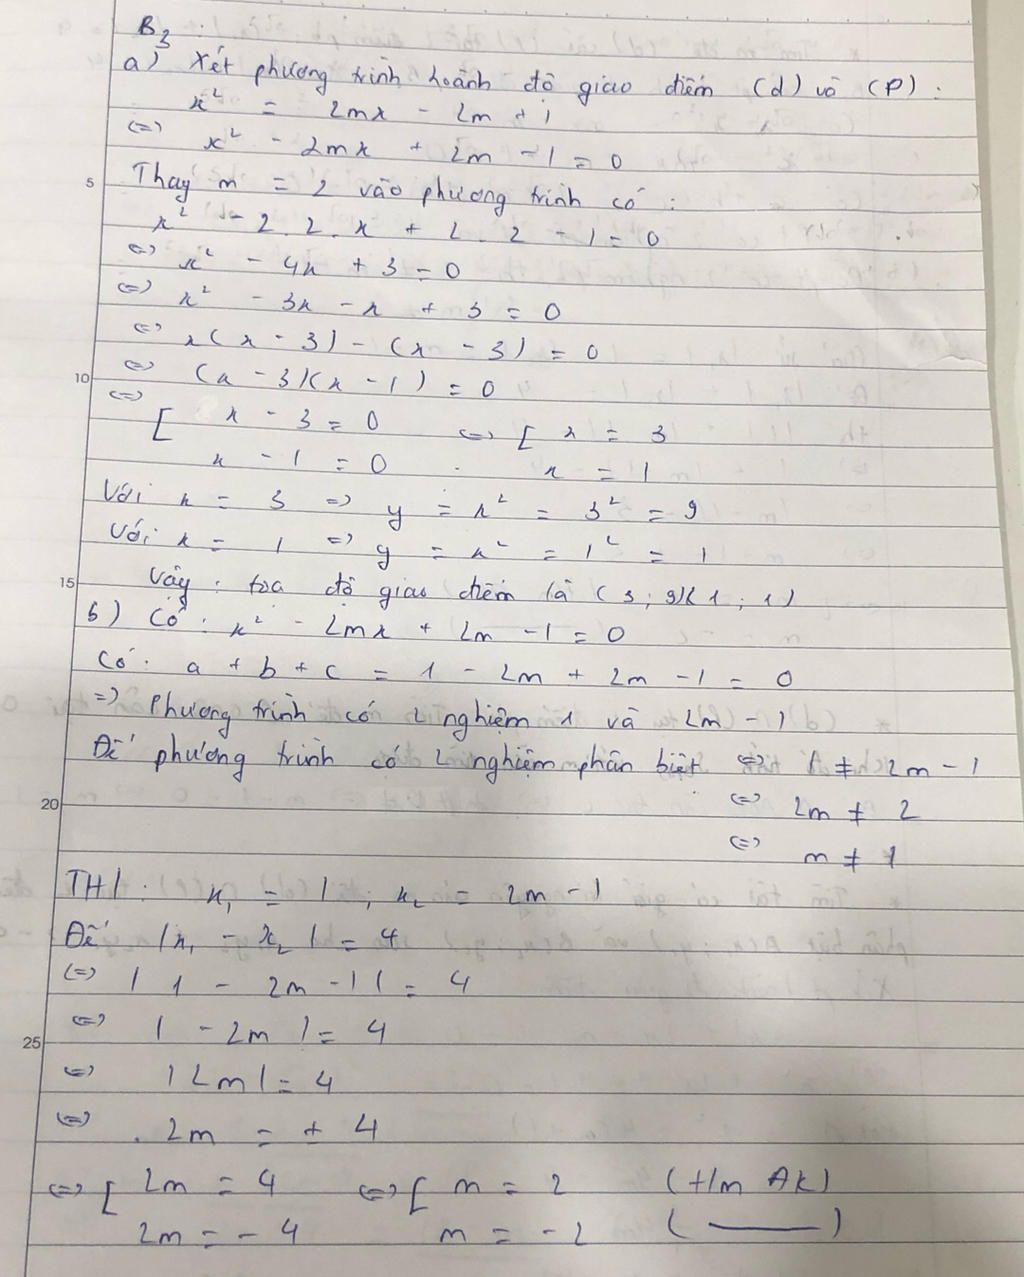 B3 :
a) Xét phương trình hoành độ giao điểm (d) và (P) :
x² = 2mx - 2m + 1
<=> x² - 2mx + 2m - 1 = 0
5 Thay m = 2 vào phương trình có :
x² - 2.2.x + 2.2 - 1 = 0
<=> x² - 4x + 3 = 0
<=> x² - 3x - x + 3 = 0
<=> x(x - 3) - (x - 3) = 0
10 <=> (x - 3)(x - 1) = 0
<=> [ x - 3 = 0 <=> [ x = 3
x - 1 = 0 x = 1
Với x = 3 => y = x² = 3² = 9
Với x = 1 => y = x² = 1² = 1
15 Vậy : tọa độ giao điểm là (3 ; 9)(1 ; 1)
b) Có : x² - 2mx + 2m - 1 = 0
Có : a + b + c = 1 - 2m + 2m - 1 = 0
=> Phương trình có 2 nghiệm 1 và 2m - 1
Để phương trình có 2 nghiệm phân biệt <=> 1 ≠ 2m - 1
20 <=> 2m ≠ 2
<=> m ≠ 1
TH1 : x₁ = 1 ; x₂ = 2m - 1
Để |x₁ - x₂| = 4
<=> |1 - 2m - 1| = 4
25 <=> |-2m| = 4
<=> |2m| = 4
<=> 2m = ± 4
<=> [ 2m = 4 <=> [ m = 2 (t/m đk)
2m = - 4 m = -2 ( —— )